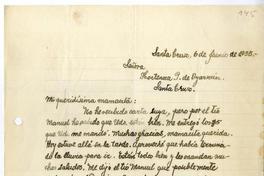 145
Santa Cruz, 6 de Junio de 1935.-
Señora
Hortensia P. de Oyarzún
Santa Cruz.
Mi queridísima mamacita:
No he recibido carta suya, pero por el tío
Manuel he sabido que Uds. están bien. Me entregó los $5
que Ud. me mandó. Muchas gracias, mamacita querida.
Hoy estuve allá en la tarde. Aproveché que había
de la lluvia para ir. Están todos bien y les mandan mu-
chos saludos. Me dijo el tío Manuel que posiblemente